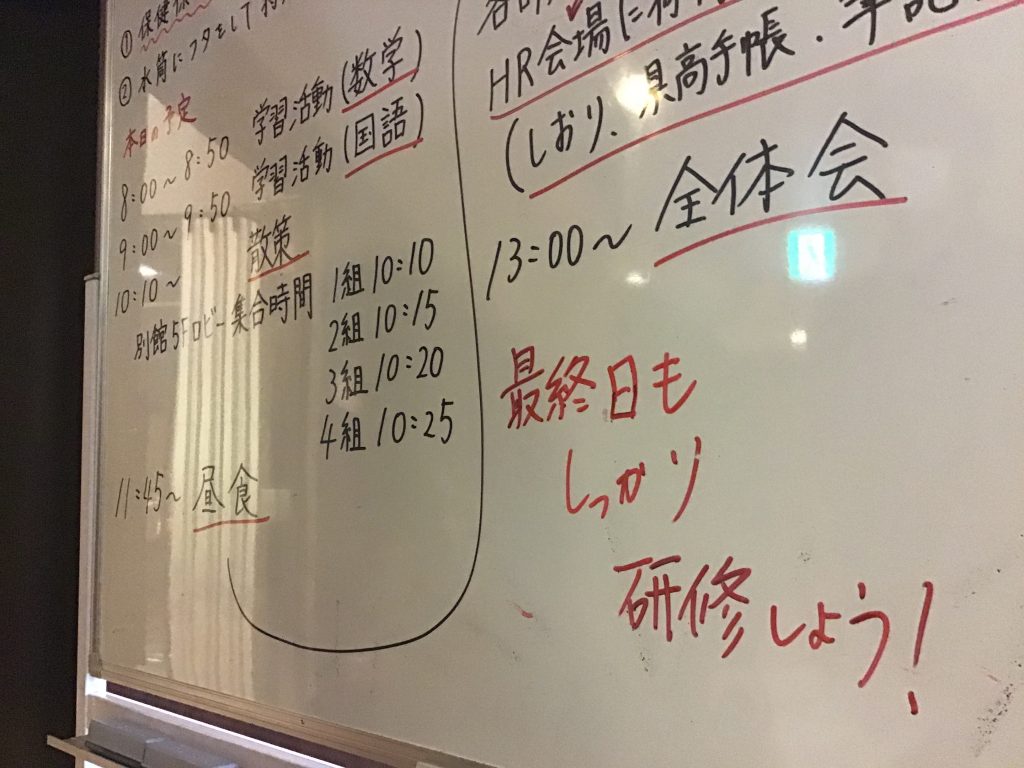 ①保健係
②水筒にフタをして
本日の予定
8:00～8:50 学習活動(数学)
9:00～9:50 学習活動(国語)
10:10～ 散策
別館5Fロビー集合時間 1組10:10
2組10:15
3組10:20
4組10:25
11:45～ 昼食
HR会場に荷
(しおり、県高手帳・筆記
13:00～ 全体会
最終日も
しっかり
研修しよう!